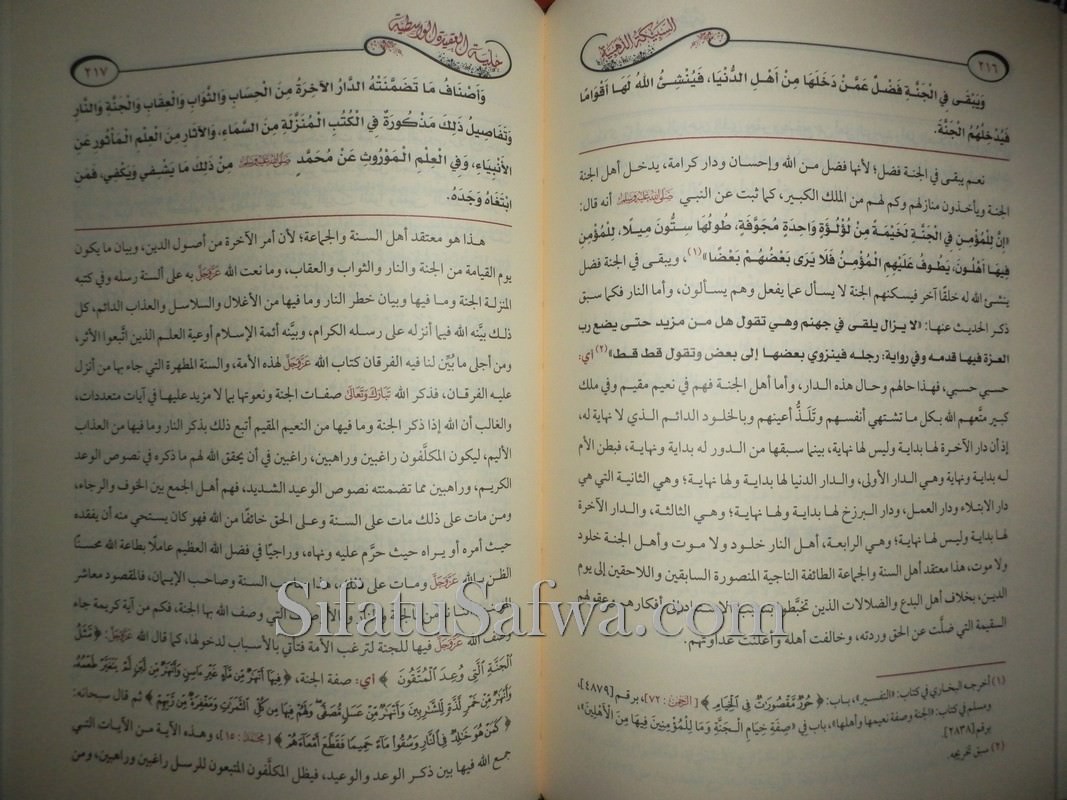 ٢١٦
السبيكة الذهبية
وَيَبْقَى فِي الْجَنَّةِ فَضْلٌ عَمَّنْ دَخَلَهَا مِنْ أَهْلِ الدُّنْيَا، فَيُنْشِئُ اللهُ لَهَا أَقْوَامًا
فَيُدْخِلُهُمُ الْجَنَّةَ.
نعم يبقى في الجنة فضل؛ لأنها فضل من الله وإحسان ودار كرامة، يدخل أهل الجنة
الجنة ويأخذون منازلهم وكم لهم من الملك الكبير، كما ثبت عن النبي ﷺ أنه قال:
«إِنَّ لِلْمُؤْمِنِ فِي الْجَنَّةِ لَخَيْمَةً مِنْ لُؤْلُؤَةٍ وَاحِدَةٍ مُجَوَّفَةٍ، طُولُهَا سِتُّونَ مِيلًا، لِلْمُؤْمِنِ
فِيهَا أَهْلُونَ، يَطُوفُ عَلَيْهِمِ الْمُؤْمِنُ فَلَا يَرَى بَعْضُهُمْ بَعْضًا»(١)، ويبقى في الجنة فضل
ينشئ الله له خلقًا آخر فيسكنهم الجنة لا يسأل عما يفعل وهم يسألون، وأما النار فكما سبق
ذكر الحديث عنها: «لا يزال يلقى في جهنم وهي تقول هل من مزيد حتى يضع رب
العزة فيها قدمه وفي رواية: رجله فينزوي بعضها إلى بعض وتقول قط قط»(٢) أي:
حسبي حسبي، فهذا حالهم وحال هذه الدار، وأما أهل الجنة فهم في نعيم مقيم وفي ملك
كبير متَّعهم الله بكل ما تشتهي أنفسهم وتَلَذُّ أعينهم وبالخلود الدائم الذي لا نهاية له،
إذ أن دار الآخرة لها بداية وليس لها نهاية، بينما سبقها من الدور له بداية ونهاية، فبطن الأم
له بداية ونهاية وهي الدار الأولى، والدار الدنيا لها بداية ولها نهاية؛ وهي الثانية التي هي
دار الابتلاء ودار العمل، ودار البرزخ لها بداية ولها نهاية؛ وهي الثالثة، والدار الآخرة
لها بداية وليس لها نهاية؛ وهي الرابعة، أهل النار خلود ولا موت وأهل الجنة خلود
ولا موت، هذا معتقد أهل السنة والجماعة الطائفة الناجية المنصورة السابقين واللاحقين إلى يوم
الدين، بخلاف أهل البدع والضلالات الذين بأفكارهم وعقولهم
السقيمة التي ضلَّت عن الحق وردته، وخالفت أهله وأعلنت عداوتهم.
(١) أخرجه البخاري في كتاب: «التفسير»، باب: ﴿حُورٌ مَّقْصُورَاتٌ فِي الْخِيَامِ﴾ [الرحمن: ٧٢]، برقم [٤٨٧٩]،
ومسلم في كتاب: «الجنة وصفة نعيمها وأهلها»، باب في «صِفَةِ خِيَامِ الْجَنَّةِ وَمَا لِلْمُؤْمِنِينَ فِيهَا مِنَ الْأَهْلِينَ»،
برقم [٢٨٣٨].
(٢) سبق تخريجه.
حلية العقيدة الواسطية
٢١٧
وَأَصْنَافُ مَا تَضَمَّنَتْهُ الدَّارُ الآخِرَةُ مِنَ الْحِسَابِ وَالثَّوَابِ وَالْعِقَابِ وَالْجَنَّةِ وَالنَّارِ
وَتَفَاصِيلُ ذَلِكَ مَذْكُورَةٌ فِي الْكُتُبِ الْمُنَزَّلَةِ مِنَ السَّمَاءِ، وَالآثَارِ مِنَ الْعِلْمِ الْمَأْثُورِ عَنِ
الأَنْبِيَاءِ، وَفِي الْعِلْمِ الْمَوْرُوثِ عَنْ مُحَمَّدٍ ﷺ مِنْ ذَلِكَ مَا يَشْفِي وَيَكْفِي، فَمَنِ
ابْتَغَاهُ وَجَدَهُ.
هذا هو معتقد أهل السنة والجماعة؛ لأن أمر الآخرة من أصول الدين، وبيان ما يكون
يوم القيامة من الجنة والنار والثواب والعقاب، وما نعت الله عَزَّوَجَلَّ به على ألسنة رسله وفي كتبه
المنزلة الجنة وما فيها وبيان خطر النار وما فيها من الأغلال والسلاسل والعذاب الدائم، كل
ذلك بيَّنه الله فيما أنزله على رسله الكرام، وبيَّنه أئمة الإسلام أوعية العلم الذين اتَّبعوا الأثر،
ومن أجلى ما بُيِّن لنا فيه الفرقان كتاب الله عَزَّوَجَلَّ لهذه الأمة، والسنة المطهرة التي جاء بها من أنزل
عليه الفرقان، فذكر الله تَبَارَكَ وَتَعَالَى صفات الجنة ونعوتها بما لا مزيد عليها في آيات متعددات،
والغالب أن الله إذا ذكر الجنة وما فيها من النعيم المقيم أتبع ذلك بذكر النار وما فيها من العذاب
الأليم، ليكون المكلَّفون راغبين وراهبين، راغبين في أن يحقق الله لهم ما ذكره في نصوص الوعد
الكريم، وراهبين مما تضمنته نصوص الوعيد الشديد، فهم أهل الجمع بين الخوف والرجاء،
ومن مات على ذلك مات على السنة وعلى الحق خائفًا من الله فهو كان يستحي منه أن يفقده
حيث أمره أو يراه حيث حرَّم عليه ونهاه، وراجيًا في فضل الله العظيم عاملًا بطاعة الله محسنًا
الظن بالله عَزَّوَجَلَّ ومات على ذلك، هذا صاحب السنة وصاحب الإيمان، فالمقصود معاشر
من الجنة والنار والأوصاف التي وصف الله بها الجنة، فكم من آية كريمة جاء
وصف الله عَزَّوَجَلَّ فيها للجنة لترغب الأمة فتأتي بالأسباب لدخولها، كما قال الله عَزَّوَجَلَّ: ﴿مَّثَلُ
الْجَنَّةِ الَّتِي وُعِدَ الْمُتَّقُونَ﴾ أي: صفة الجنة، ﴿فِيهَا أَنْهَارٌ مِّن مَّاءٍ غَيْرِ آسِنٍ وَأَنْهَارٌ مِّن لَّبَنٍ لَّمْ يَتَغَيَّرْ طَعْمُهُ
وَأَنْهَارٌ مِّنْ خَمْرٍ لَّذَّةٍ لِّلشَّارِبِينَ وَأَنْهَارٌ مِّنْ عَسَلٍ مُّصَفًّى وَلَهُمْ فِيهَا مِن كُلِّ الثَّمَرَاتِ وَمَغْفِرَةٌ مِّن رَّبِّهِمْ﴾ ثم قال سبحانه:
﴿كَمَنْ هُوَ خَالِدٌ فِي النَّارِ وَسُقُوا مَاءً حَمِيمًا فَقَطَّعَ أَمْعَاءَهُمْ﴾ [محمد: ١٥]، وهذه الآية من الآيات التي
جمع الله فيها بين ذكر الوعد والوعيد، فيظل المكلَّفون المتبعون للرسل راغبين وراهبين، ومن
SifatuSafwa.com